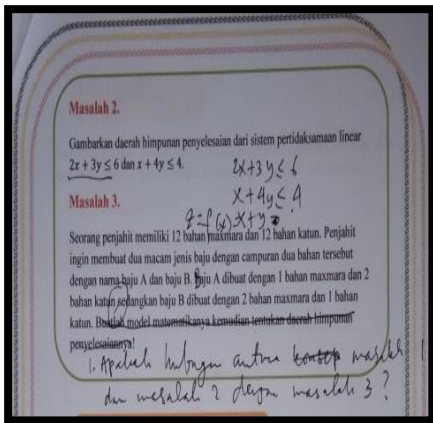 Masalah 2.
Gambarkan daerah himpunan penyelesaian dari sistem pertidaksamaan linear
2x + 3y ≤ 6 dan x + 4y ≤ 4.
2x+3y ≤ 6
x+4y ≤ 4
Masalah 3.
z = f(x) = x+y
Seorang penjahit memiliki 12 bahan maxmara dan 12 bahan katun. Penjahit
ingin membuat dua macam jenis baju dengan campuran dua bahan tersebut
dengan nama baju A dan baju B. Baju A dibuat dengan 1 bahan maxmara dan 2
bahan katun sedangkan baju B dibuat dengan 2 bahan maxmara dan 1 bahan
katun. Buatlah model matematikanya kemudian tentukan daerah himpunan
penyelesaiannya!
1. Apakah hubungan antara konsep masalah 1
dan masalah 2 dengan masalah 3 ?